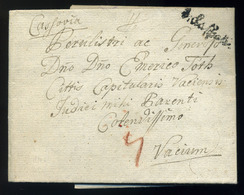 Cassovia
Perillustri ac Generoso
Dño Dño Emerico Toth
Cottus Capitularis Vaciensis
Judici mihi Parenti
Colendissimo
Vacium